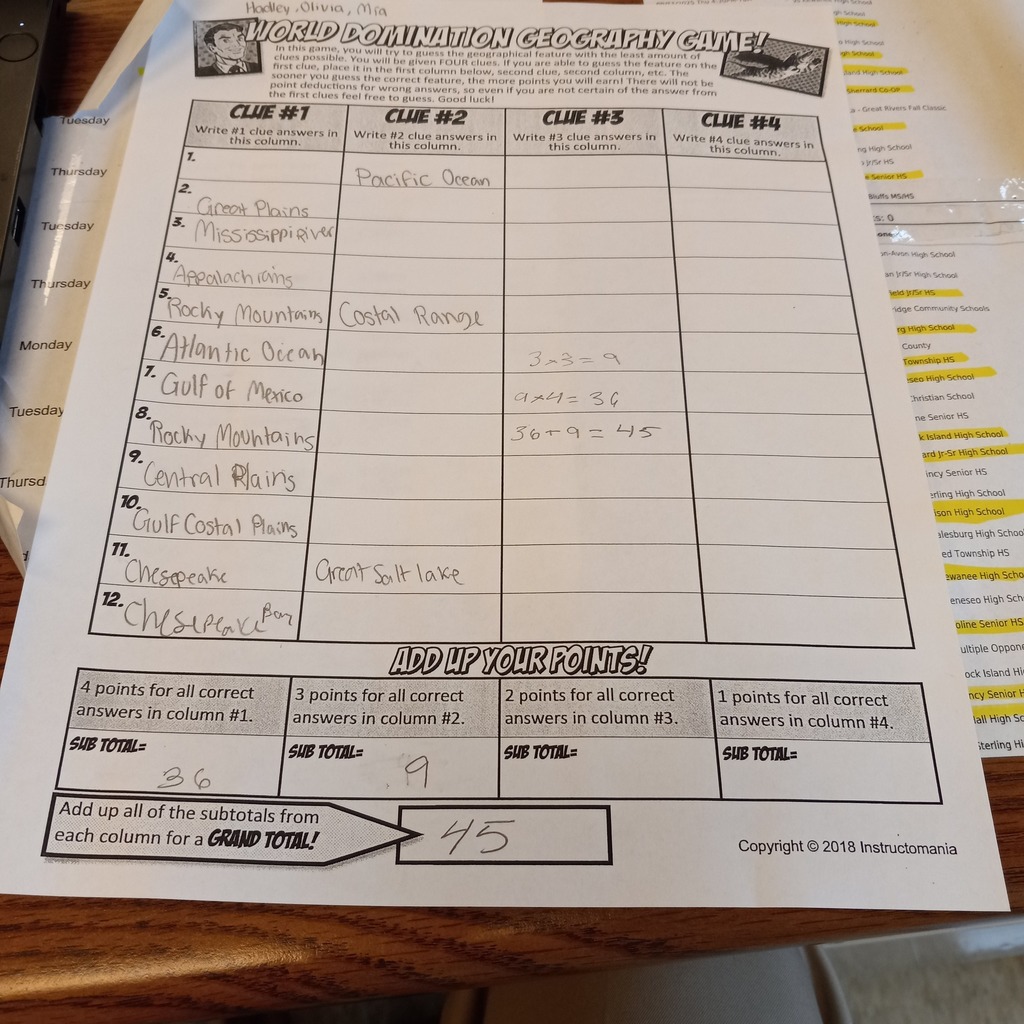 Hadley, Olivia, Mia
WORLD DOMINATION GEOGRAPHY GAME!
In this game, you will try to guess the geographical feature with the least amount of
clues possible. You will be given FOUR clues. If you are able to guess the feature on the
first clue, place it in the first column below, second clue, second column, etc. The
sooner you guess the correct feature, the more points you will earn! There will not be
point deductions for wrong answers, so even if you are not certain of the answer from
the first clues feel free to guess. Good luck!
CLUE #1 CLUE #2 CLUE #3 CLUE #4
Write #1 clue answers in this column. Write #2 clue answers in this column. Write #3 clue answers in this column. Write #4 clue answers in this column.
1. Pacific Ocean
2. Great Plains
3. Mississippi River
4. Appalachians
5. Rocky Mountains Costal Range
6. Atlantic Ocean 3x3=9
7. Gulf of Mexico 9x4=36
8. Rocky Mountains 36+9=45
9. Central Plains
10. Gulf Costal Plains
11. Chesepeake Great Salt lake
12. Chesepeake Bay
ADD UP YOUR POINTS!
4 points for all correct answers in column #1. 3 points for all correct answers in column #2. 2 points for all correct answers in column #3. 1 points for all correct answers in column #4.
SUB TOTAL= 36 SUB TOTAL= 9 SUB TOTAL= SUB TOTAL=
Add up all of the subtotals from
each column for a GRAND TOTAL! 45
Copyright © 2018 Instructomania
Tuesday
Thursday
Tuesday
Thursday
Monday
Tuesday
Thursd
- Great Rivers Fall Classic
High School
Senior HS
Bluffs MS/HS
Jr/Sr High School
Community Schools
County
Township HS
High School
Christian School
Senior HS
Island High School
Jr-Sr High School
Senior HS
High School
High School
Township HS
Senior HS